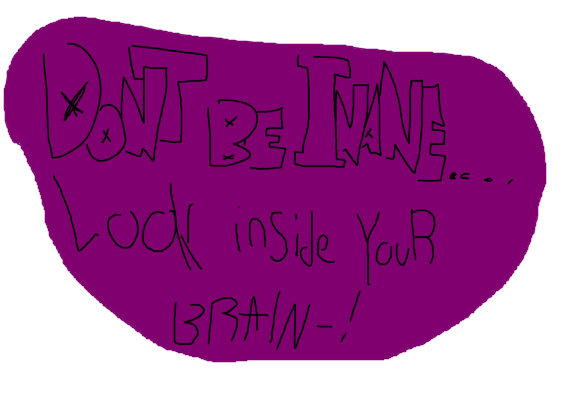 DONT BE INANE.....
Look inside YouR
BRAIN-!